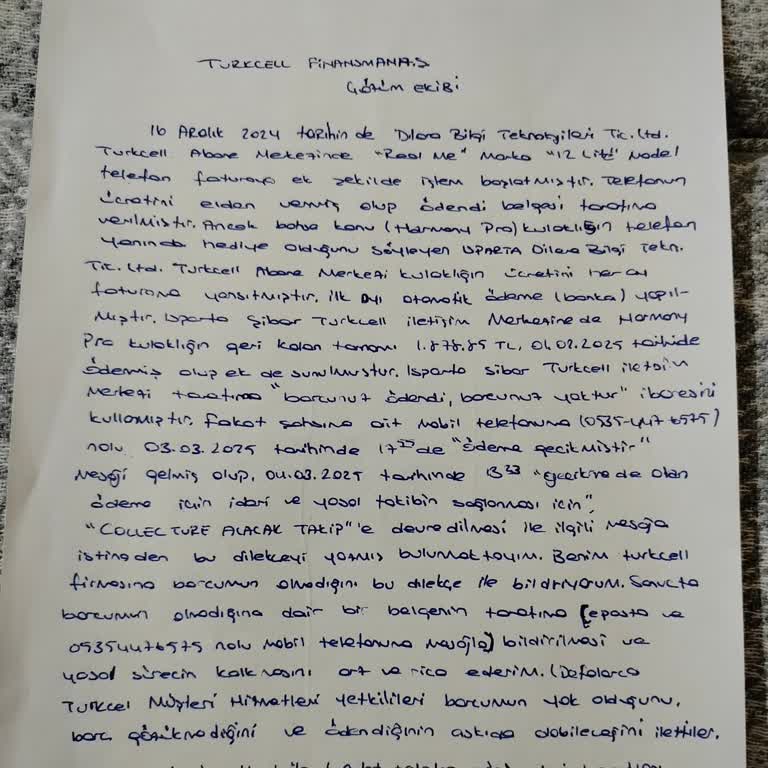 TURKCELL FİNANSMAN A.Ş
ÇÖZÜM EKİBİ
16 Aralık 2024 tarihin de Dilara Bilgi Teknolojileri Tic. Ltd.
Turkcell Abone Merkezince "Real Me" Marka "12 Lite" Model
telefon faturaya ek şekilde işlem başlatmıştır. Telefonun
ücretini elden vermiş olup ödendi belgesi tarafıma
verilmiştir. Ancak bahse konu (Harmony Pro) kulaklığın telefon
yanında hediye olduğunu söyleyen ISPARTA Dilara Bilgi Tekn.
Tic. Ltd. Turkcell Abone Merkezi kulaklığın ücretini her ay
faturama yansıtmıştır. İlk ayı otomatik ödeme (banka) yapıl-
mıştır. Isparta Sibar Turkcell iletişim Merkezine de Harmony
Pro kulaklığın geri kalan tamamı 1.878.85 TL, 04.02.2025 tarihide
ödemiş olup ek de sunulmuştur. Isparta Sibar Turkcell iletişim
Merkezi tarafıma "borcunuz ödendi, borcunuz yoktur" ibaresini
kullanmıştır. Fakat şahsıma ait mobil telefonuma (0535-447 6575)
nolu 03.03.2025 tarihinde 17 de "ödeme gecikmiştir"
Mesajı gelmiş olup, 04.03.2025 tarhinde 13 33 "gecikme de olan
ödeme için idari ve yasal takibin sağlanması için",
"COLLECTURE ALACAK TAKİP"'e devredilmesi ile ilgili mesaja
istineden bu dilekçeyi yazmış bulunmaktayım. Benim turkcell
firmasına borcumun olmadığını bu dilekçe ile bildiriyorum. Sonuçta
borcumun olmadığına dair bir belgenin tarafıma (eposta ve
05354476575 nolu mobil telefonuma mesajla) bildirilmesi ve
yasal sürecin kalkmasını arz ve rica ederim. (Defalarca
Turkcel Müşteri Hizmetleri yetkilileri borcumun yok olduğunu,
borç gözükmediğini ve ödendiğinin askıda olabileceğini ilettiler.